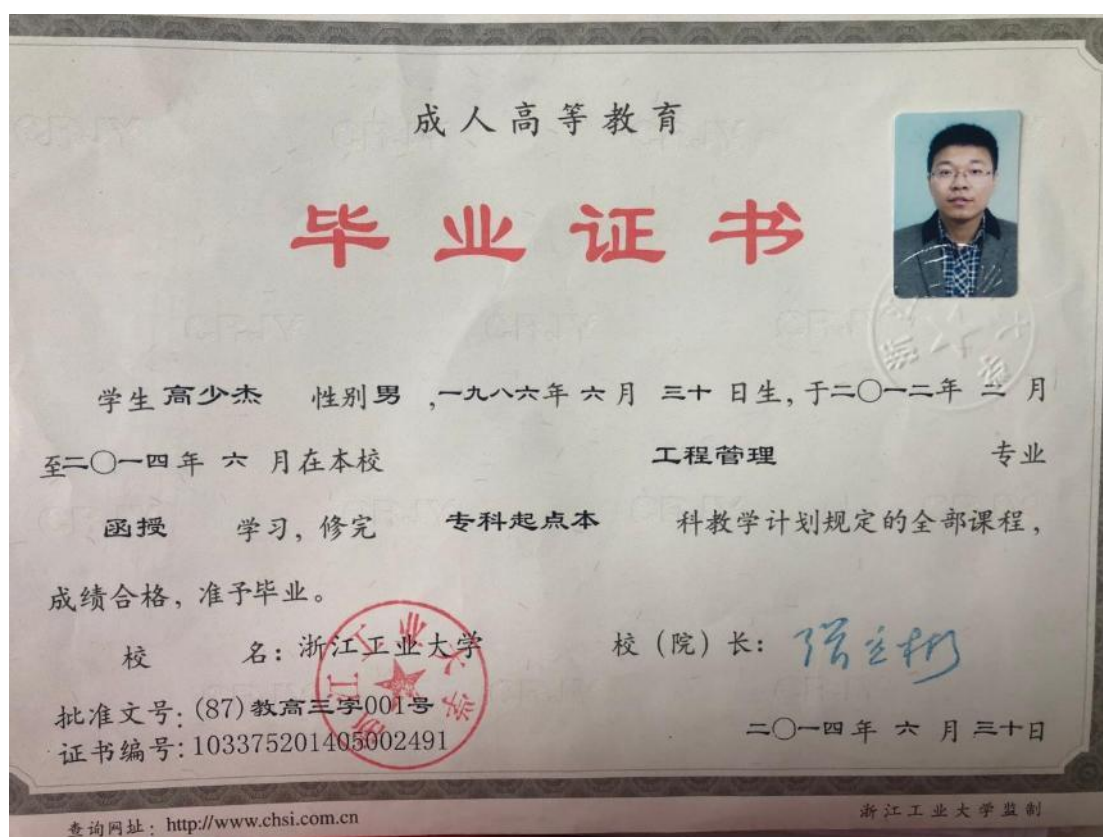 成人高等教育
毕业证书
学生 高少杰 性别 男 ,一九八六年 六 月 三十 日生, 于二〇一二年 二 月
至二〇一四 年 六 月在本校 工程管理 专业
函授 学习, 修完 专科起点本 科教学计划规定的全部课程,
成绩合格, 准予毕业。
校 名: 浙江工业大学 校 (院) 长: 张立彬
批准文号: (87) 教高三字001号
证书编号: 103375201405002491
二〇一四 年 六 月 三十日
浙江工业大学
查询网址: http://www.chsi.com.cn
浙江工业大学监制